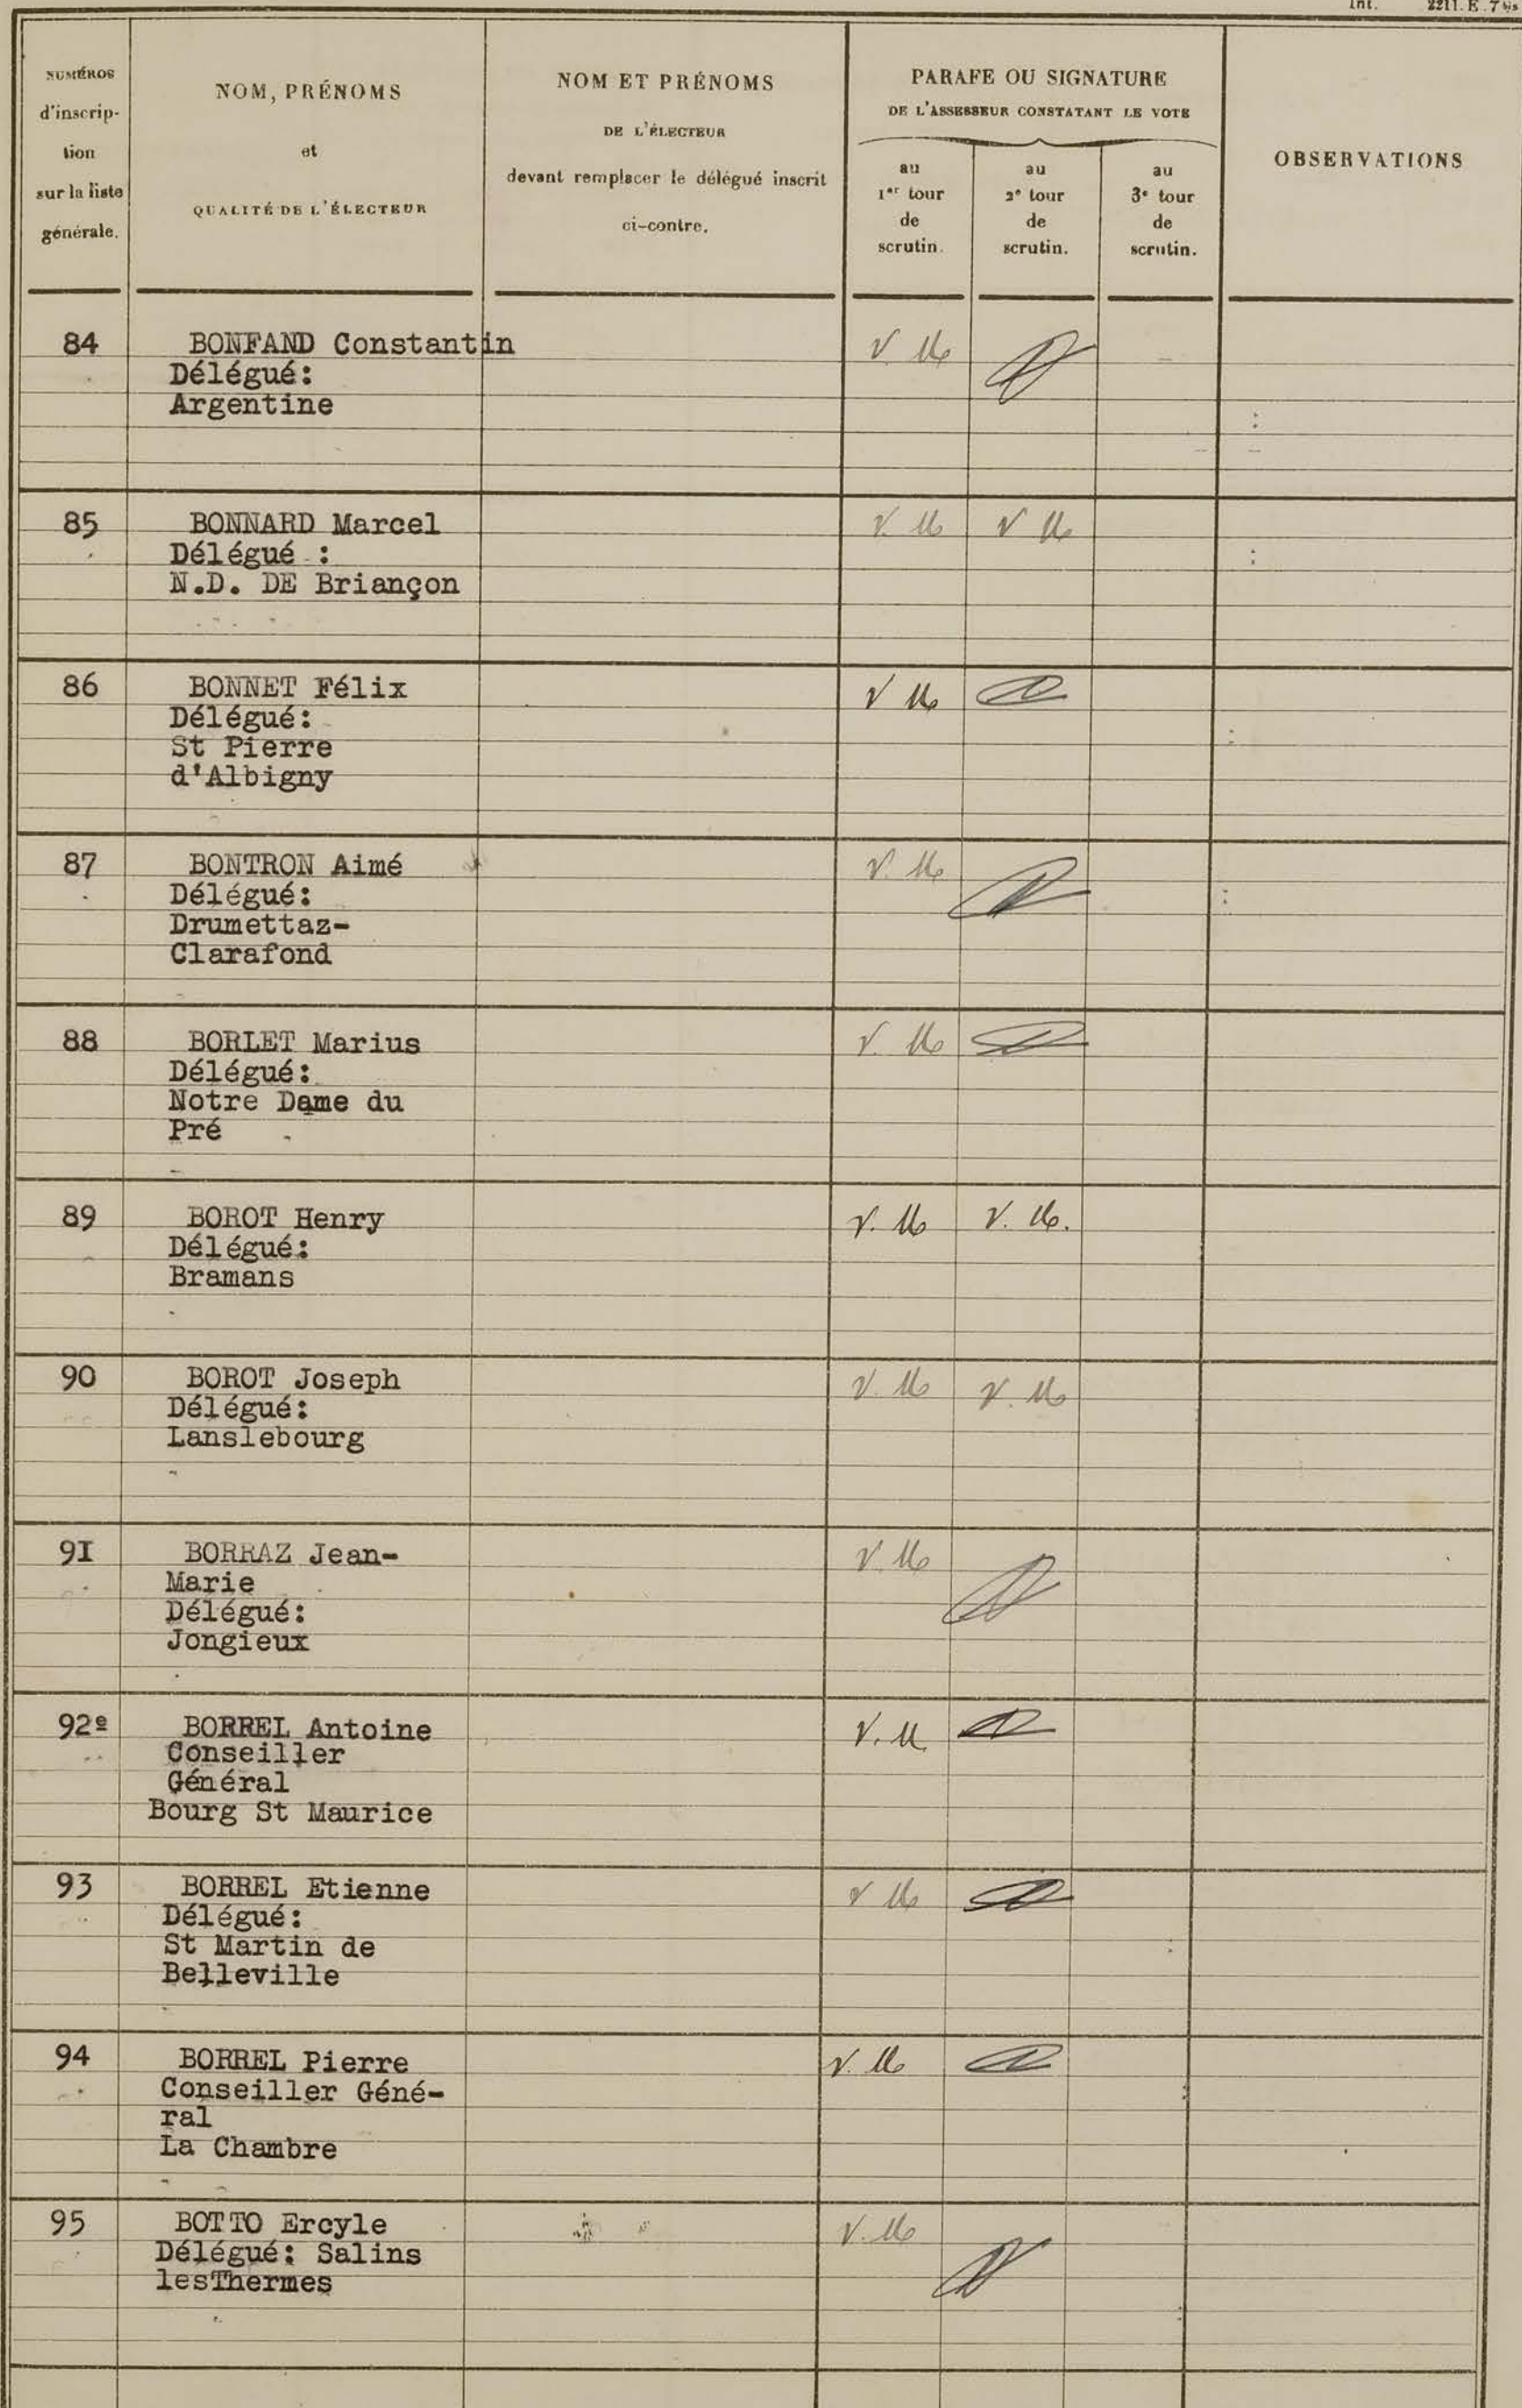 Int. 2211. E. 7 bis
NUMÉROS
d'inscrip-
tion
sur la liste
générale.
NOM, PRÉNOMS
et
QUALITÉ DE L'ÉLECTEUR
NOM ET PRÉNOMS
DE L'ÉLECTEUR
devant remplacer le délégué inscrit
ci-contre.
PARAFE OU SIGNATURE
DE L'ASSESSEUR CONSTATANT LE VOTE
au
1er tour
de
scrutin.
au
2e tour
de
scrutin.
au
3e tour
de
scrutin.
OBSERVATIONS
84 BONFAND Constantin
Délégué:
Argentine
85 BONNARD Marcel
Délégué :
N.D. DE Briançon
86 BONNET Félix
Délégué:
St Pierre
d'Albigny
87 BONTRON Aimé
Délégué:
Drumettaz-
Clarafond
88 BORLET Marius
Délégué:
Notre Dame du
Pré
89 BOROT Henry
Délégué:
Bramans
90 BOROT Joseph
Délégué:
Lanslebourg
9I BORRAZ Jean-
Marie
Délégué:
Jongieux
92º BORREL Antoine
Conseiller
Général
Bourg St Maurice
93 BORREL Etienne
Délégué:
St Martin de
Belleville
94 BORREL Pierre
Conseiller Géné-
ral
La Chambre
95 BOTTO Ercyle
Délégué: Salins
lesThermes